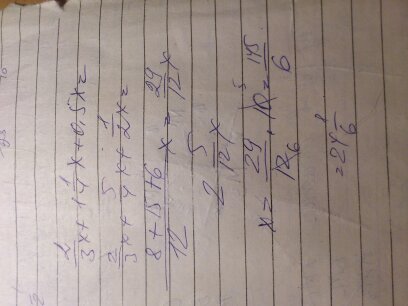 2/3x+1 1/4x+0,5x=
2/3x+5/4x+1/2x=
8+15+6/12 x = 29/12x
2 5/12x
x = 29/12 6 · 10 5 = 145/6
= 24 1/6